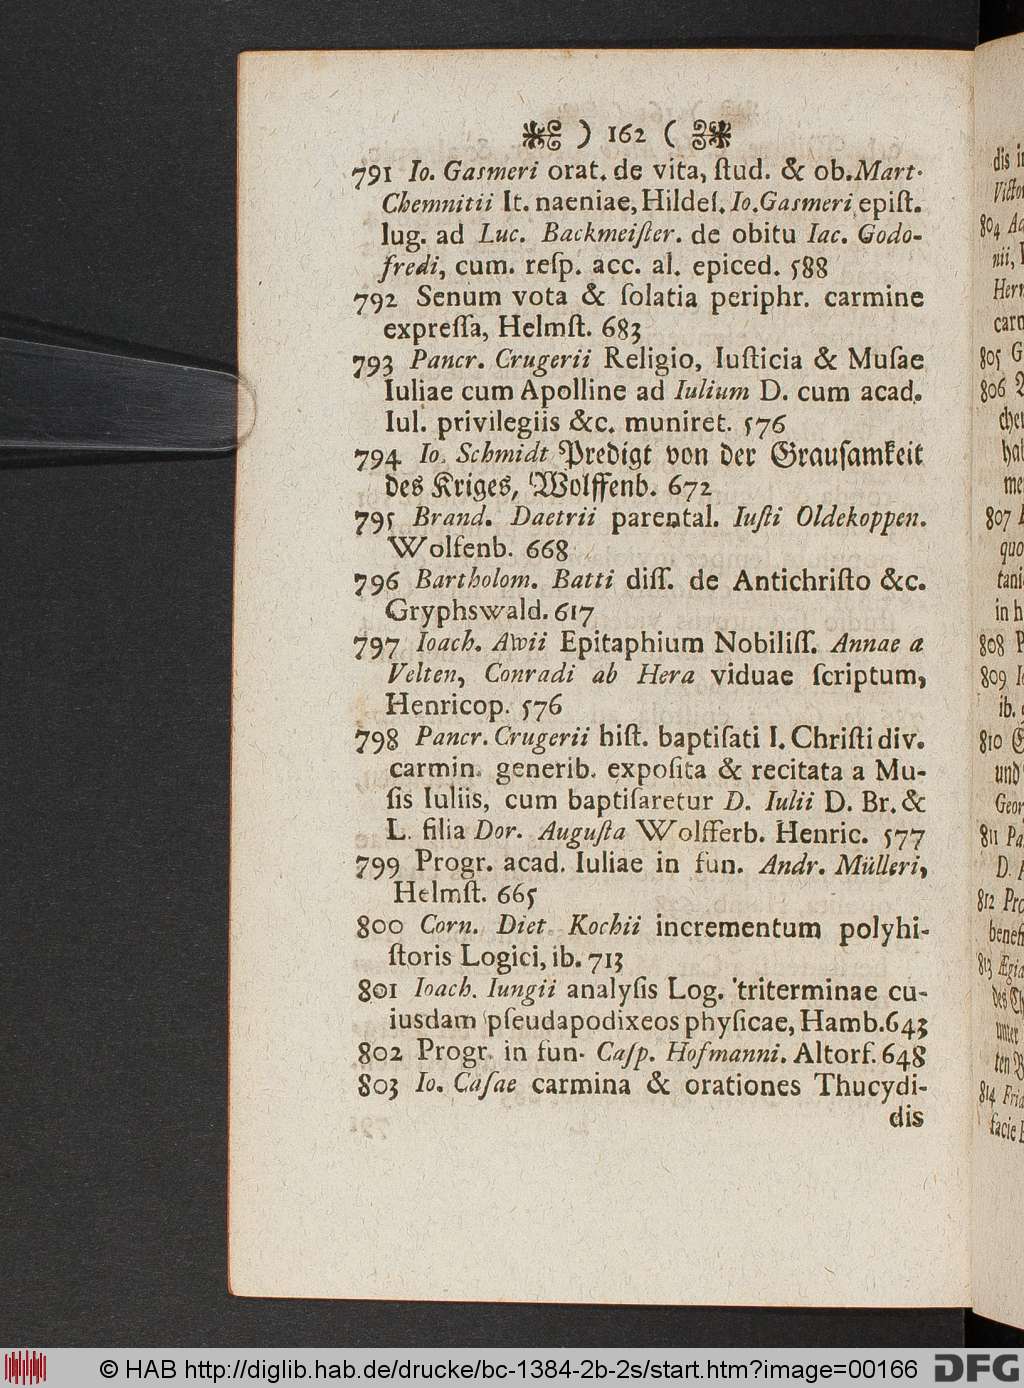 ) 162 (
791 Io. Gasmeri orat. de vita, ſtud. & ob. Mart.
Chemnitii It. naeniae, Hildeſ. Io. Gasmeri epiſt.
lug. ad Luc. Backmeiſter. de obitu Iac. Godo-
fredi, cum. reſp. acc. al. epiced. 588
792 Senum vota & ſolatia periphr. carmine
expreſſa, Helmſt. 683
793 Pancr. Crugerii Religio, Iuſticia & Muſae
Iuliae cum Apolline ad Iulium D. cum acad.
Iul. privilegiis &c. muniret. 576
794 Io. Schmidt Predigt von der Grauſamkeit
des Kriges, Wolffenb. 672
795 Brand. Daetrii parental. Iuſti Oldekoppen.
Wolfenb. 668
796 Bartholom. Batti diſſ. de Antichriſto &c.
Gryphswald. 617
797 Ioach. Awii Epitaphium Nobiliſſ. Annae a
Velten, Conradi ab Hera viduae ſcriptum,
Henricop. 576
798 Pancr. Crugerii hiſt. baptiſati I. Chriſti div.
carmin. generib. expoſita & recitata a Mu-
ſis Iuliis, cum baptiſaretur D. Iulii D. Br. &
L. filia Dor. Auguſta Wolfferb. Henric. 577
799 Progr. acad. Iuliae in fun. Andr. Mülleri,
Helmſt. 665
800 Corn. Diet. Kochii incrementum polyhi-
ſtoris Logici, ib. 713
801 Ioach. Iungii analyſis Log. triterminae cu-
iusdam pſeudapodixeos phyſicae, Hamb. 643
802 Progr. in fun. Caſp. Hofmanni. Altorf. 648
803 Io. Caſae carmina & orationes Thucydi-
dis
804
805
806
807
808
809
ib.
810
und
811
D.
812
813
814
© HAB http://diglib.hab.de/drucke/bc-1384-2b-2s/start.htm?image=00166
DFG